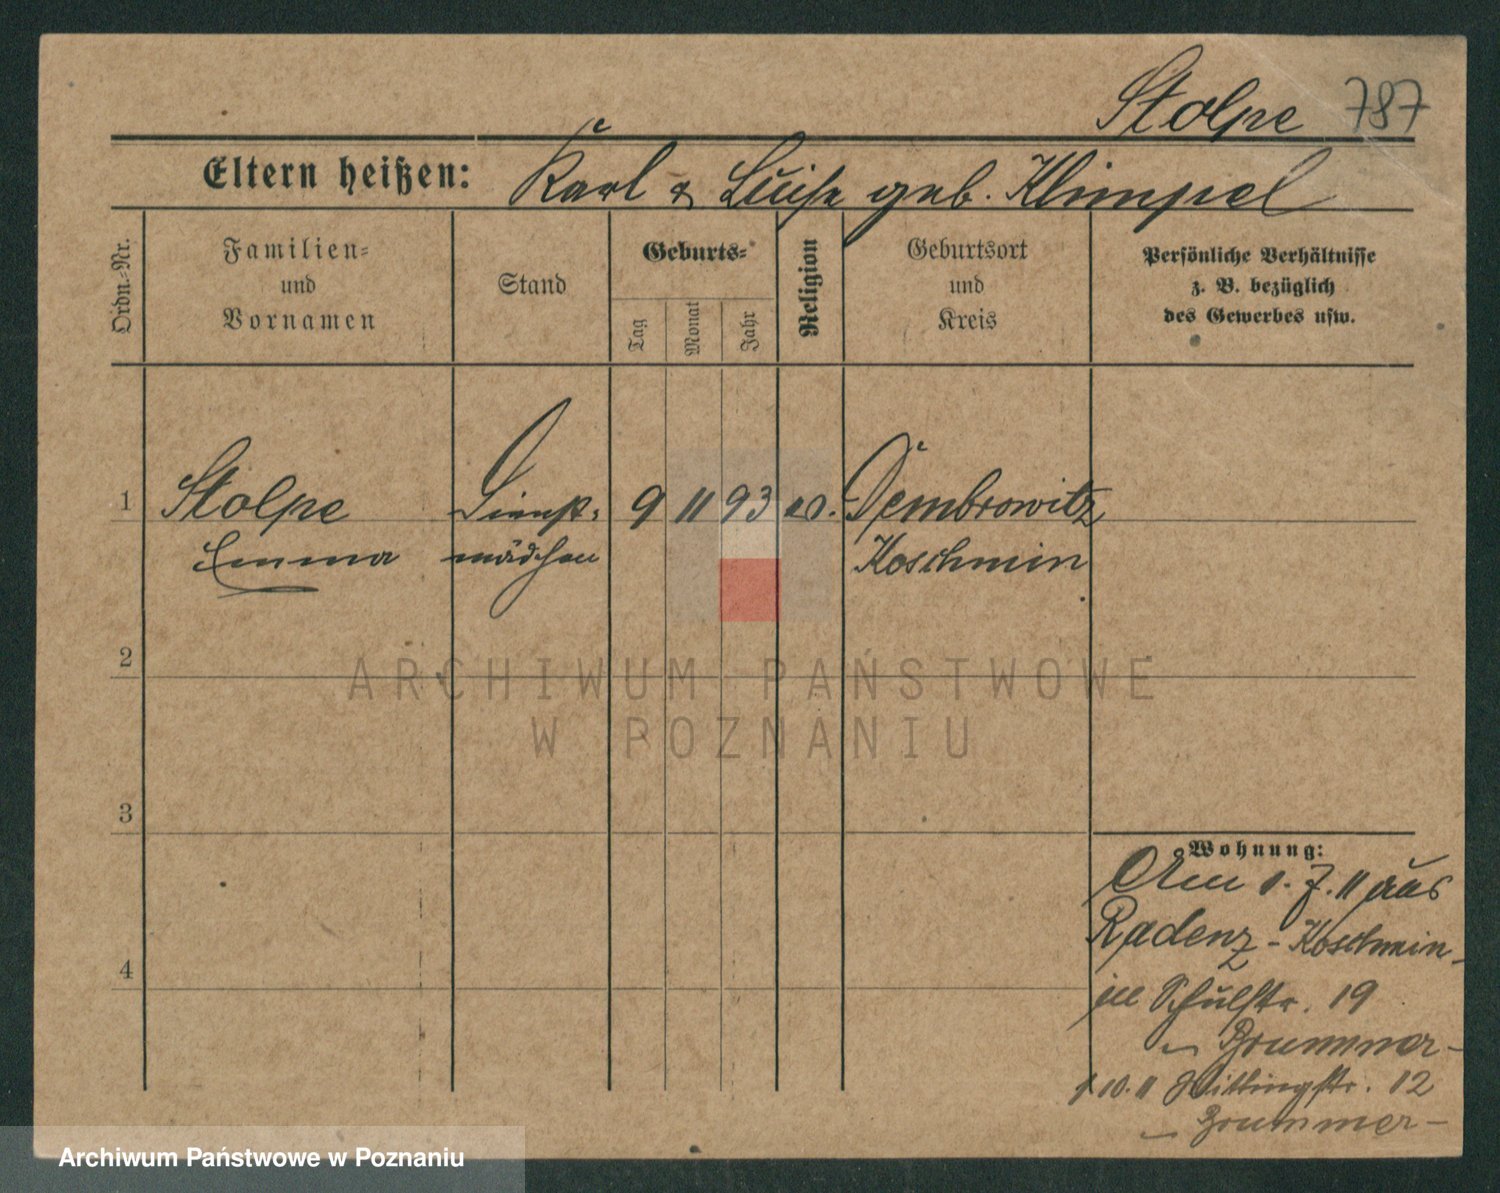 Stolpe 787
Eltern heißen: Karl & Luise geb. Klimpel
Ordn.-Nr.
Familien- und Vornamen
Stand
Geburts-
Tag
Monat
Jahr
Religion
Geburtsort und Kreis
Persönliche Verhältnisse z. B. bezüglich des Gewerbes usw.
1 Stolpe Dienst- 9 11 93 ev. Dembrowitz
Emma mädchen Koschmin
2
ARCHIWUM PAŃSTWOWE
W POZNANIU
3
Wohnung:
Am 1. 7. 11 aus
Radenz - Koschmin -
Schulstr. 19
- Brummer -
10. 11 12
- Brummer -
4
Archiwum Państwowe w Poznaniu